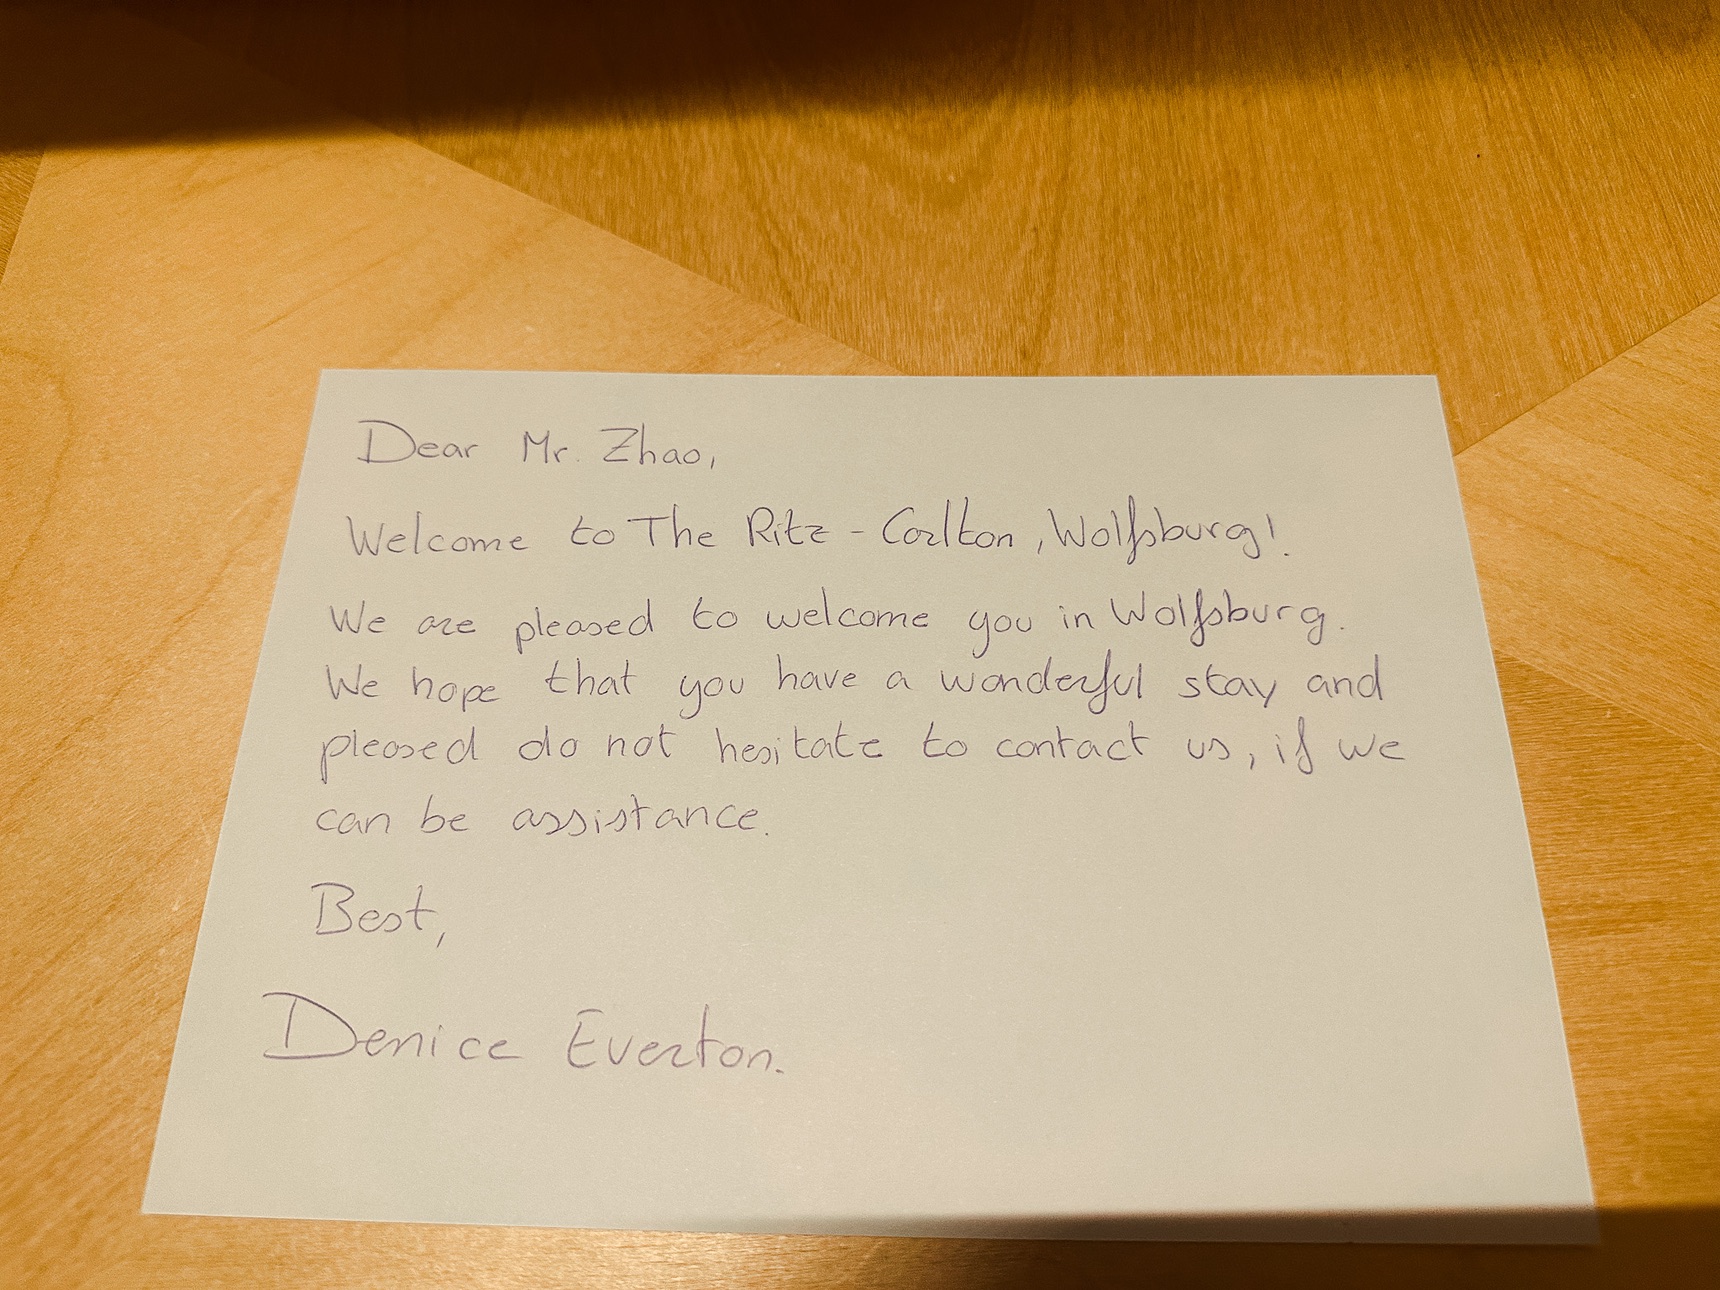 Dear Mr. Zhao,
Welcome to The Ritz - Carlton, Wolfsburg!
We are pleased to welcome you in Wolfsburg.
We hope that you have a wonderful stay and
pleased do not hesitate to contact us, if we
can be assistance.
Best,
Denice Everton.